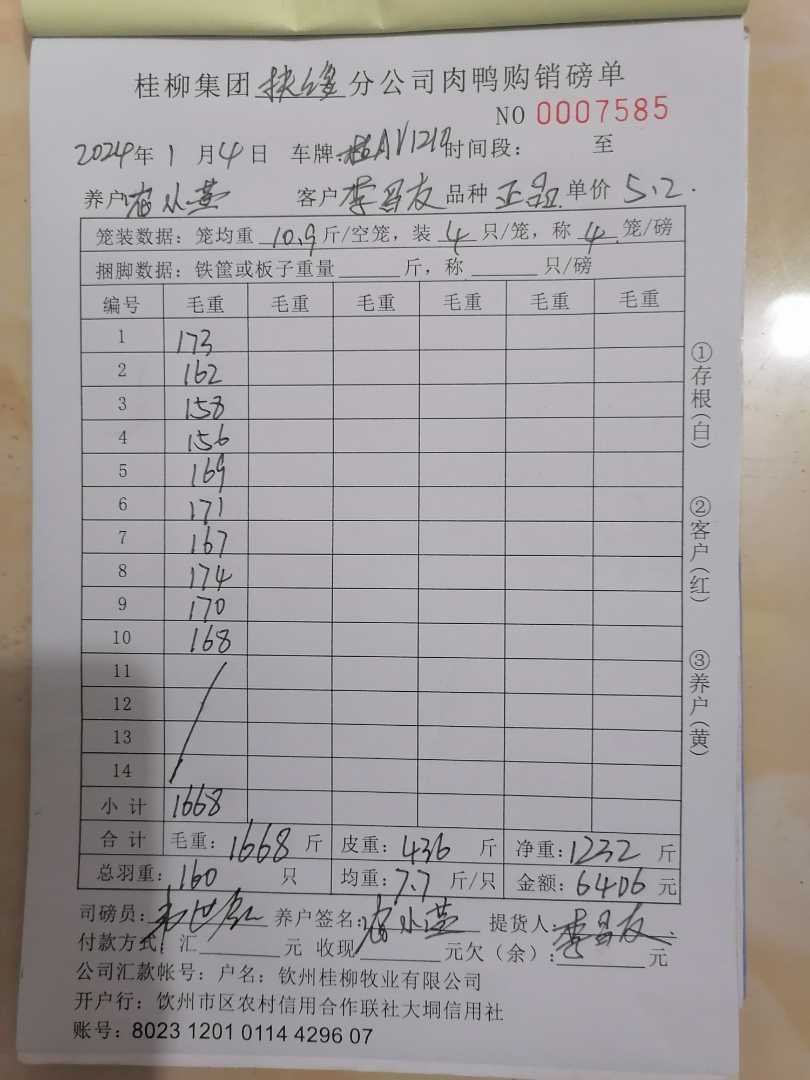 桂柳集团扶绥分公司肉鸭购销磅单
NO 0007585
2024年1月4日 车牌: 时间段: 至
养户 客户李昌友 品种 正品 单价 5.2.
笼装数据: 笼均重 10.9 斤/空笼, 装 4 只/笼, 称 4 笼/磅
捆脚数据: 铁筐或板子重量 斤, 称 只/磅
编号 毛重 毛重 毛重 毛重 毛重 毛重
1 173
2 162
3 158
4 156
5 169
6 171
7 167
8 174
9 170
10 168
11
12
13
14
小计 1668
合计 毛重: 1668 斤 皮重: 436 斤 净重: 1232 斤
总羽重: 160 只 均重: 7.7 斤/只 金额: 6406 元
司磅员: 养户签名: 提货人: 李昌友
付款方式: 汇 元 收现 元欠(余): 元
公司汇款帐号: 户名: 钦州桂柳牧业有限公司
开户行: 钦州市区农村信用合作联社大垌信用社
账号: 8023 1201 0114 4296 07
①存根(白)
②客户(红)
③养户(黄)